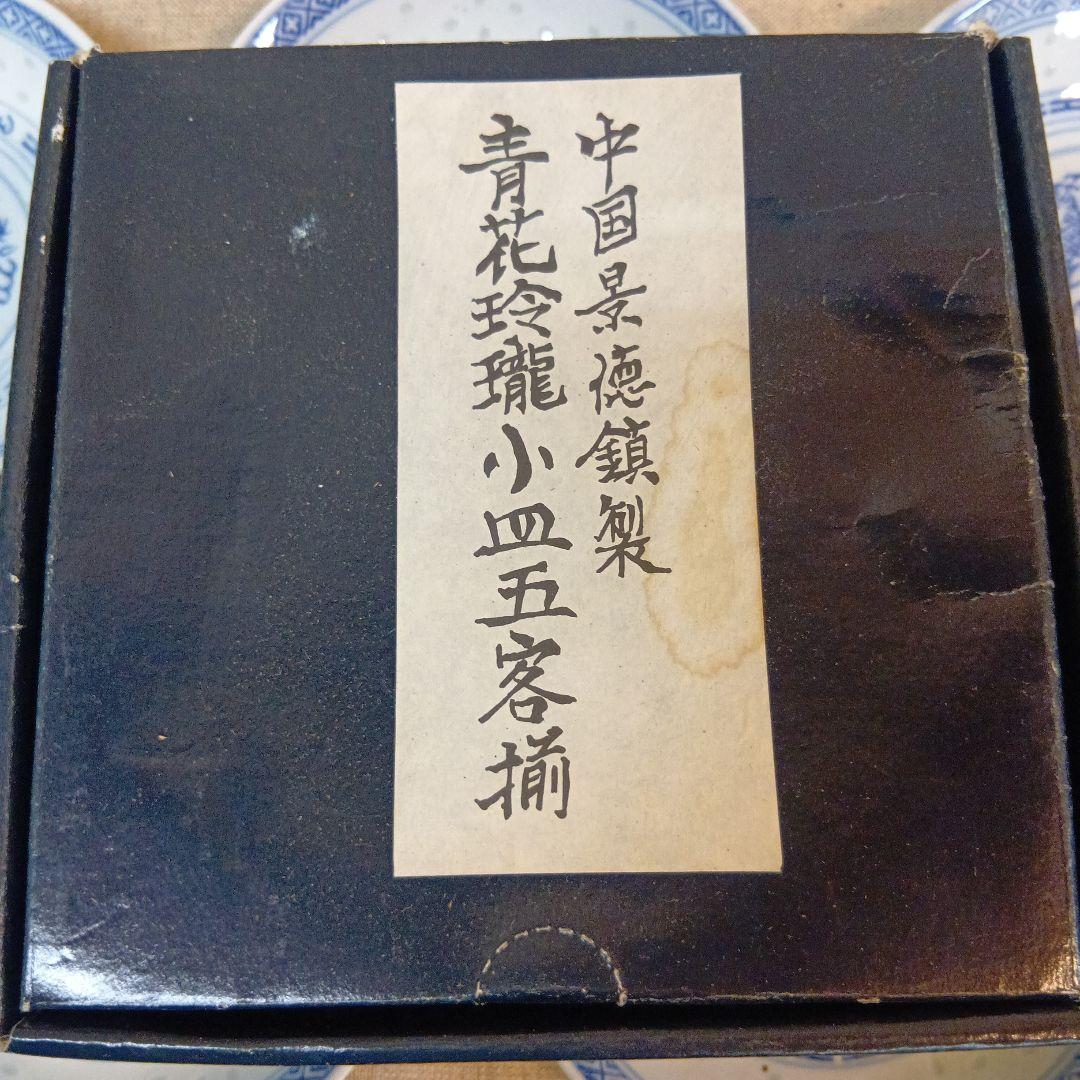 中国景徳鎮製
青花玲瓏小皿五客揃